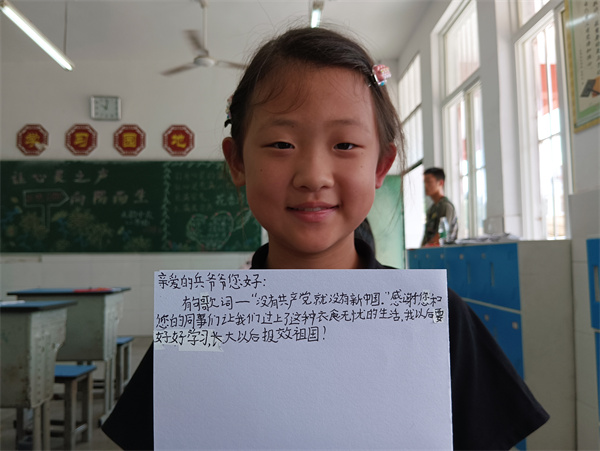 学习园地
让心灵之
向阳而生
亲爱的兵爷爷您好:
有句歌词—“没有共产党,就没有新中国.”感谢您和
您的同事们让我们过上了这种衣食无忧的生活,我以后要
好好学习,长大以后报效祖国!